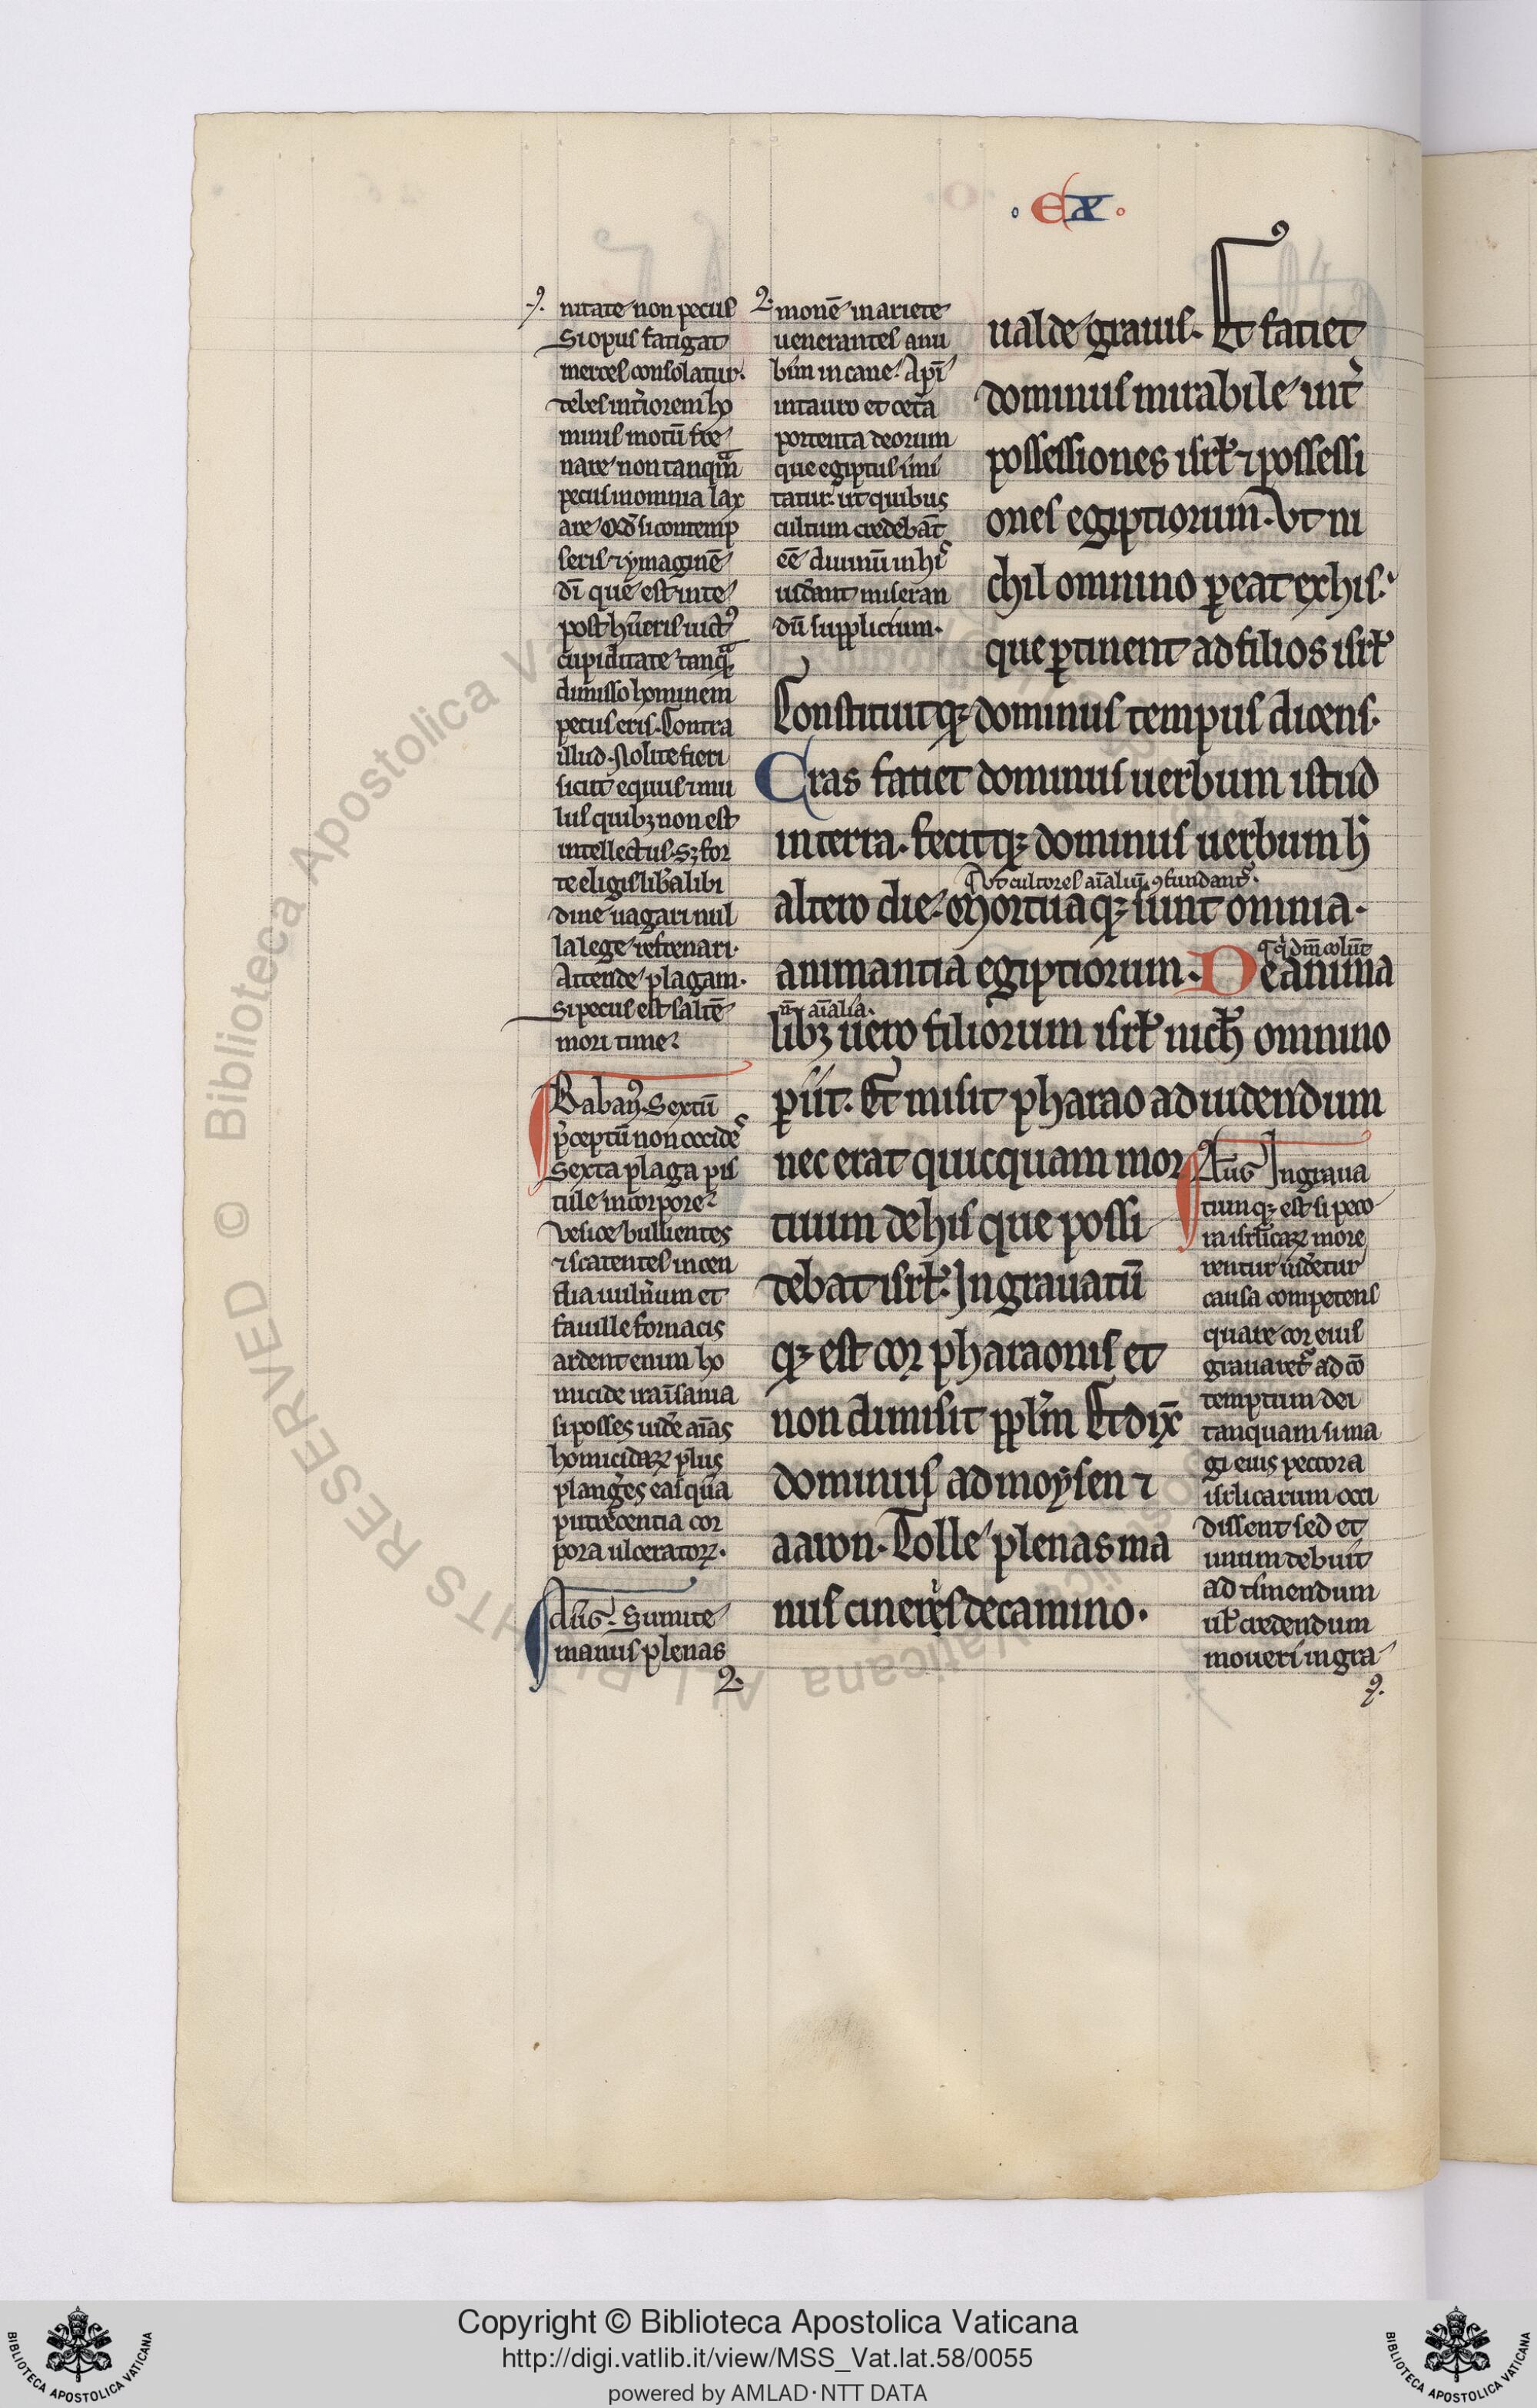 · EX ·
nitate non peccus
Si opus fatigat
merces consolatur.
debes int̾iorem ho
minis motū fre
nare non tanqͣm
pecus in omnia lax
are. Qđ si contemp
seris ⁊ ymaginē
dī que est in te
cupiditate tanqͣ
dimisso hominem
pecus eris. Contra
illud. Nolite fieri
sicut equus ⁊ mu
lus quibꝫ non est
intellectus. Sꝫ for
te eligis lib̾a libi
dine uagari nul
la lege refrenari.
Attende plagam.
Si pecus est saltē
mori time.
Rabanꝰ. Sextū
p̾ceptū non occideˢ
Sexta plaga pus
tule in corpore
vesice bullientes
⁊ scatentes incen
dia uuln̾um et
fauille fornacis
ardent enim ho
micide ira īsania
si posses uid̾e aīas
homicidaꝝ plus
plang̾es eas q̄ͣ
putrescentia cor
pora ulceratoꝝ.
Aug. Sumite
manus plenas
2.
2. monē in ariete
uenerantes anu
bim in cane. Apī
in tauro et cet̾a
portenta deorum
que egiptus imi
tatur. ut quibus
cultum credebāt
eē diuinū in hiˢ
uid̾ant miseran
dū supplicium.
ualde grauis. Et faciet
dominus mirabile int̾
possessiones isrł ⁊ possessi
ones egiptiorum. Vt ni
chil omnino ꝑeat ex his
que ꝑtinent ad filios isrł
Constituitqꝫ dominus tempus dicens.
Cras faciet dominus uerbum istud
in terra. fecitqꝫ dominus uerbum h̄
Vt cultores aīaliū ꝯfundant̾.
altero die. Mortuaqꝫ sunt omnia
q̾ dm̄ colūt
animantia egiptiorum. De anima
n̄ aīalia.
libꝫ uero filiorum isrł nich̄ omnino
ꝑiit. Et misit pharao ad uidendum
nec erat quicquam mor
tuum de his que possi
debat isrł. Ingrauatū
qꝫ est cor pharaonis et
non dimisit ppłm Et dix̄
dominus ad moysen ⁊
aaron. Tolle plenas ma
nus cineres de camino.
Aug Ingraua
tumqꝫ est si peco
ra isrłicaꝝ more
rentur uid̾etur
causa competens
quare cor eius
grauaret̾ ad cō
temptum dei
tanquam si ma
gi eius peccora
isrłicarum occi
dissent sed et
unum debuit
ad timendum
uł credendum
moueri ingra
Copyright © Biblioteca Apostolica Vaticana
http://digi.vatlib.it/view/MSS_Vat.lat.58/0055
powered by AMLAD·NTT DATA
BIBLIOTECA APOSTOLICA VATICANA
BIBLIOTECA APOSTOLICA VATICANA